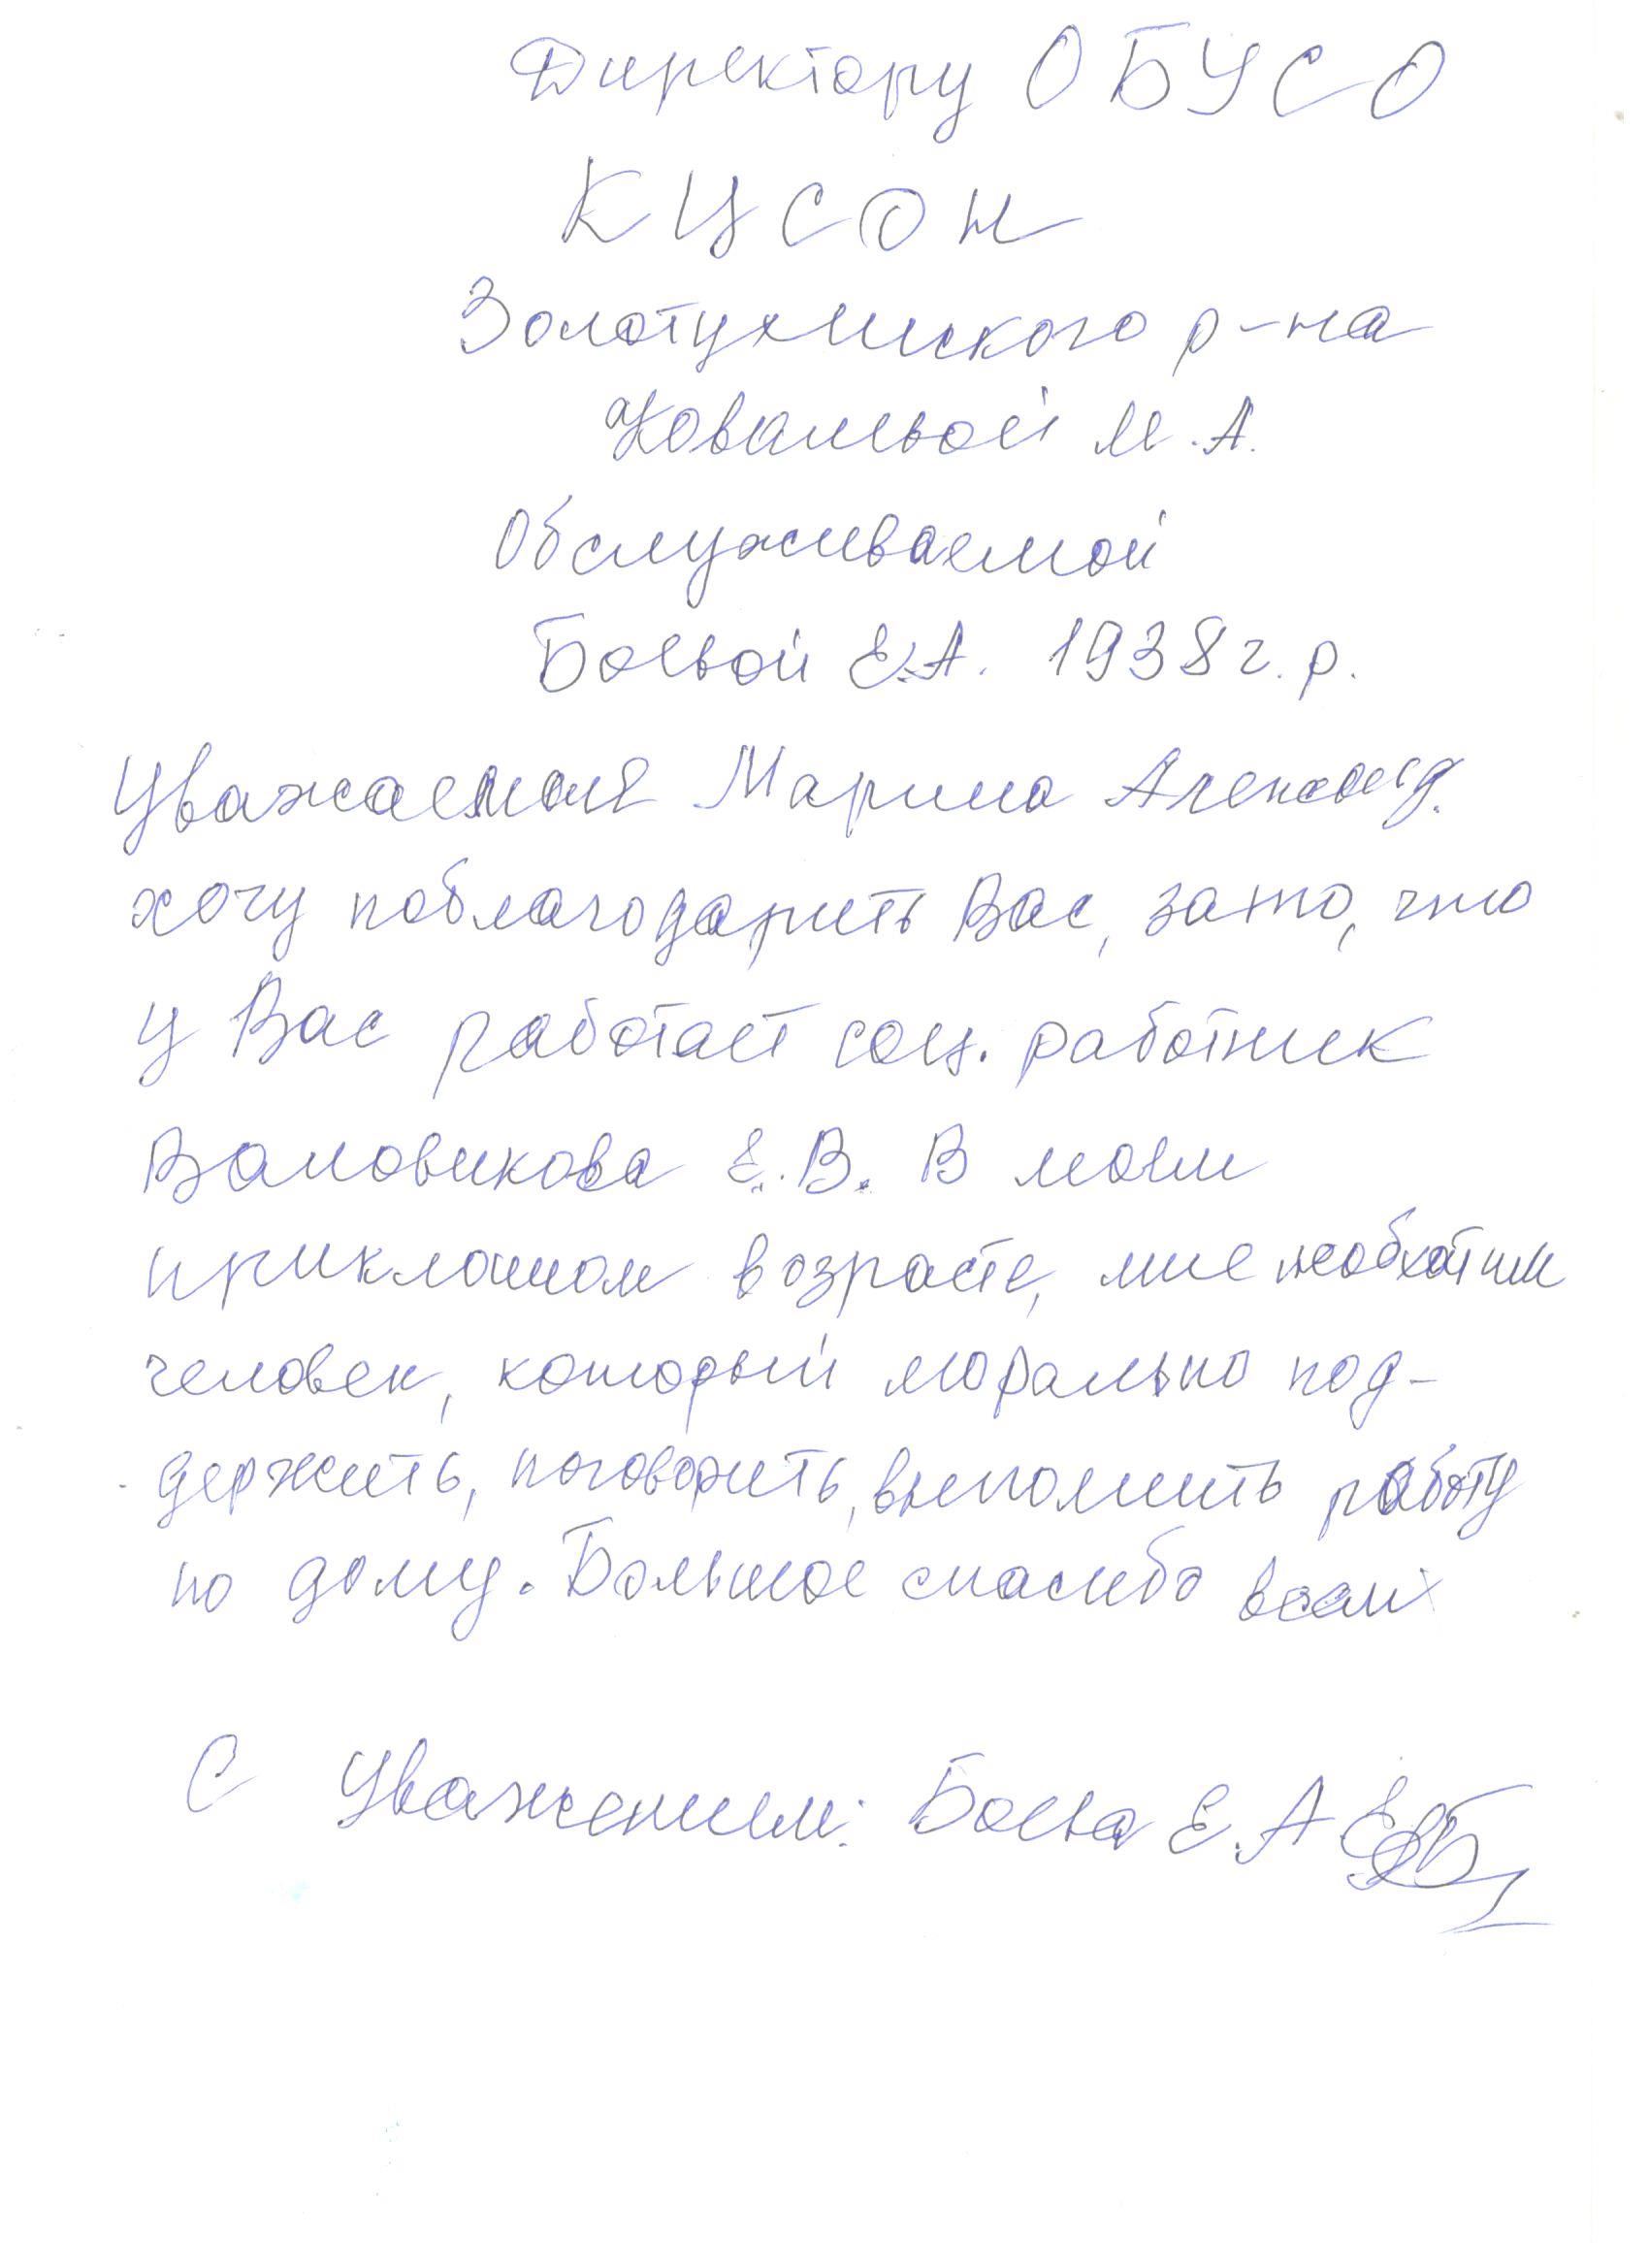 Директору ОБУСО
КЦСОН
Золотухинского р-на
Ковалевой М.А.
Обслуживаемой
Боевой Е.А. 1938 г.р.
Уважаемая Марина Александ.
хочу поблагодарить Вас, зато, что
у Вас работает соц. работник
Воловикова Е.В. В моем
приклонном возрасте, мне необхотим
человек, который морально под-
держить, поговорить, выполнить работу
по дому. Большое спасибо всем
С Уважением: Боева Е.А